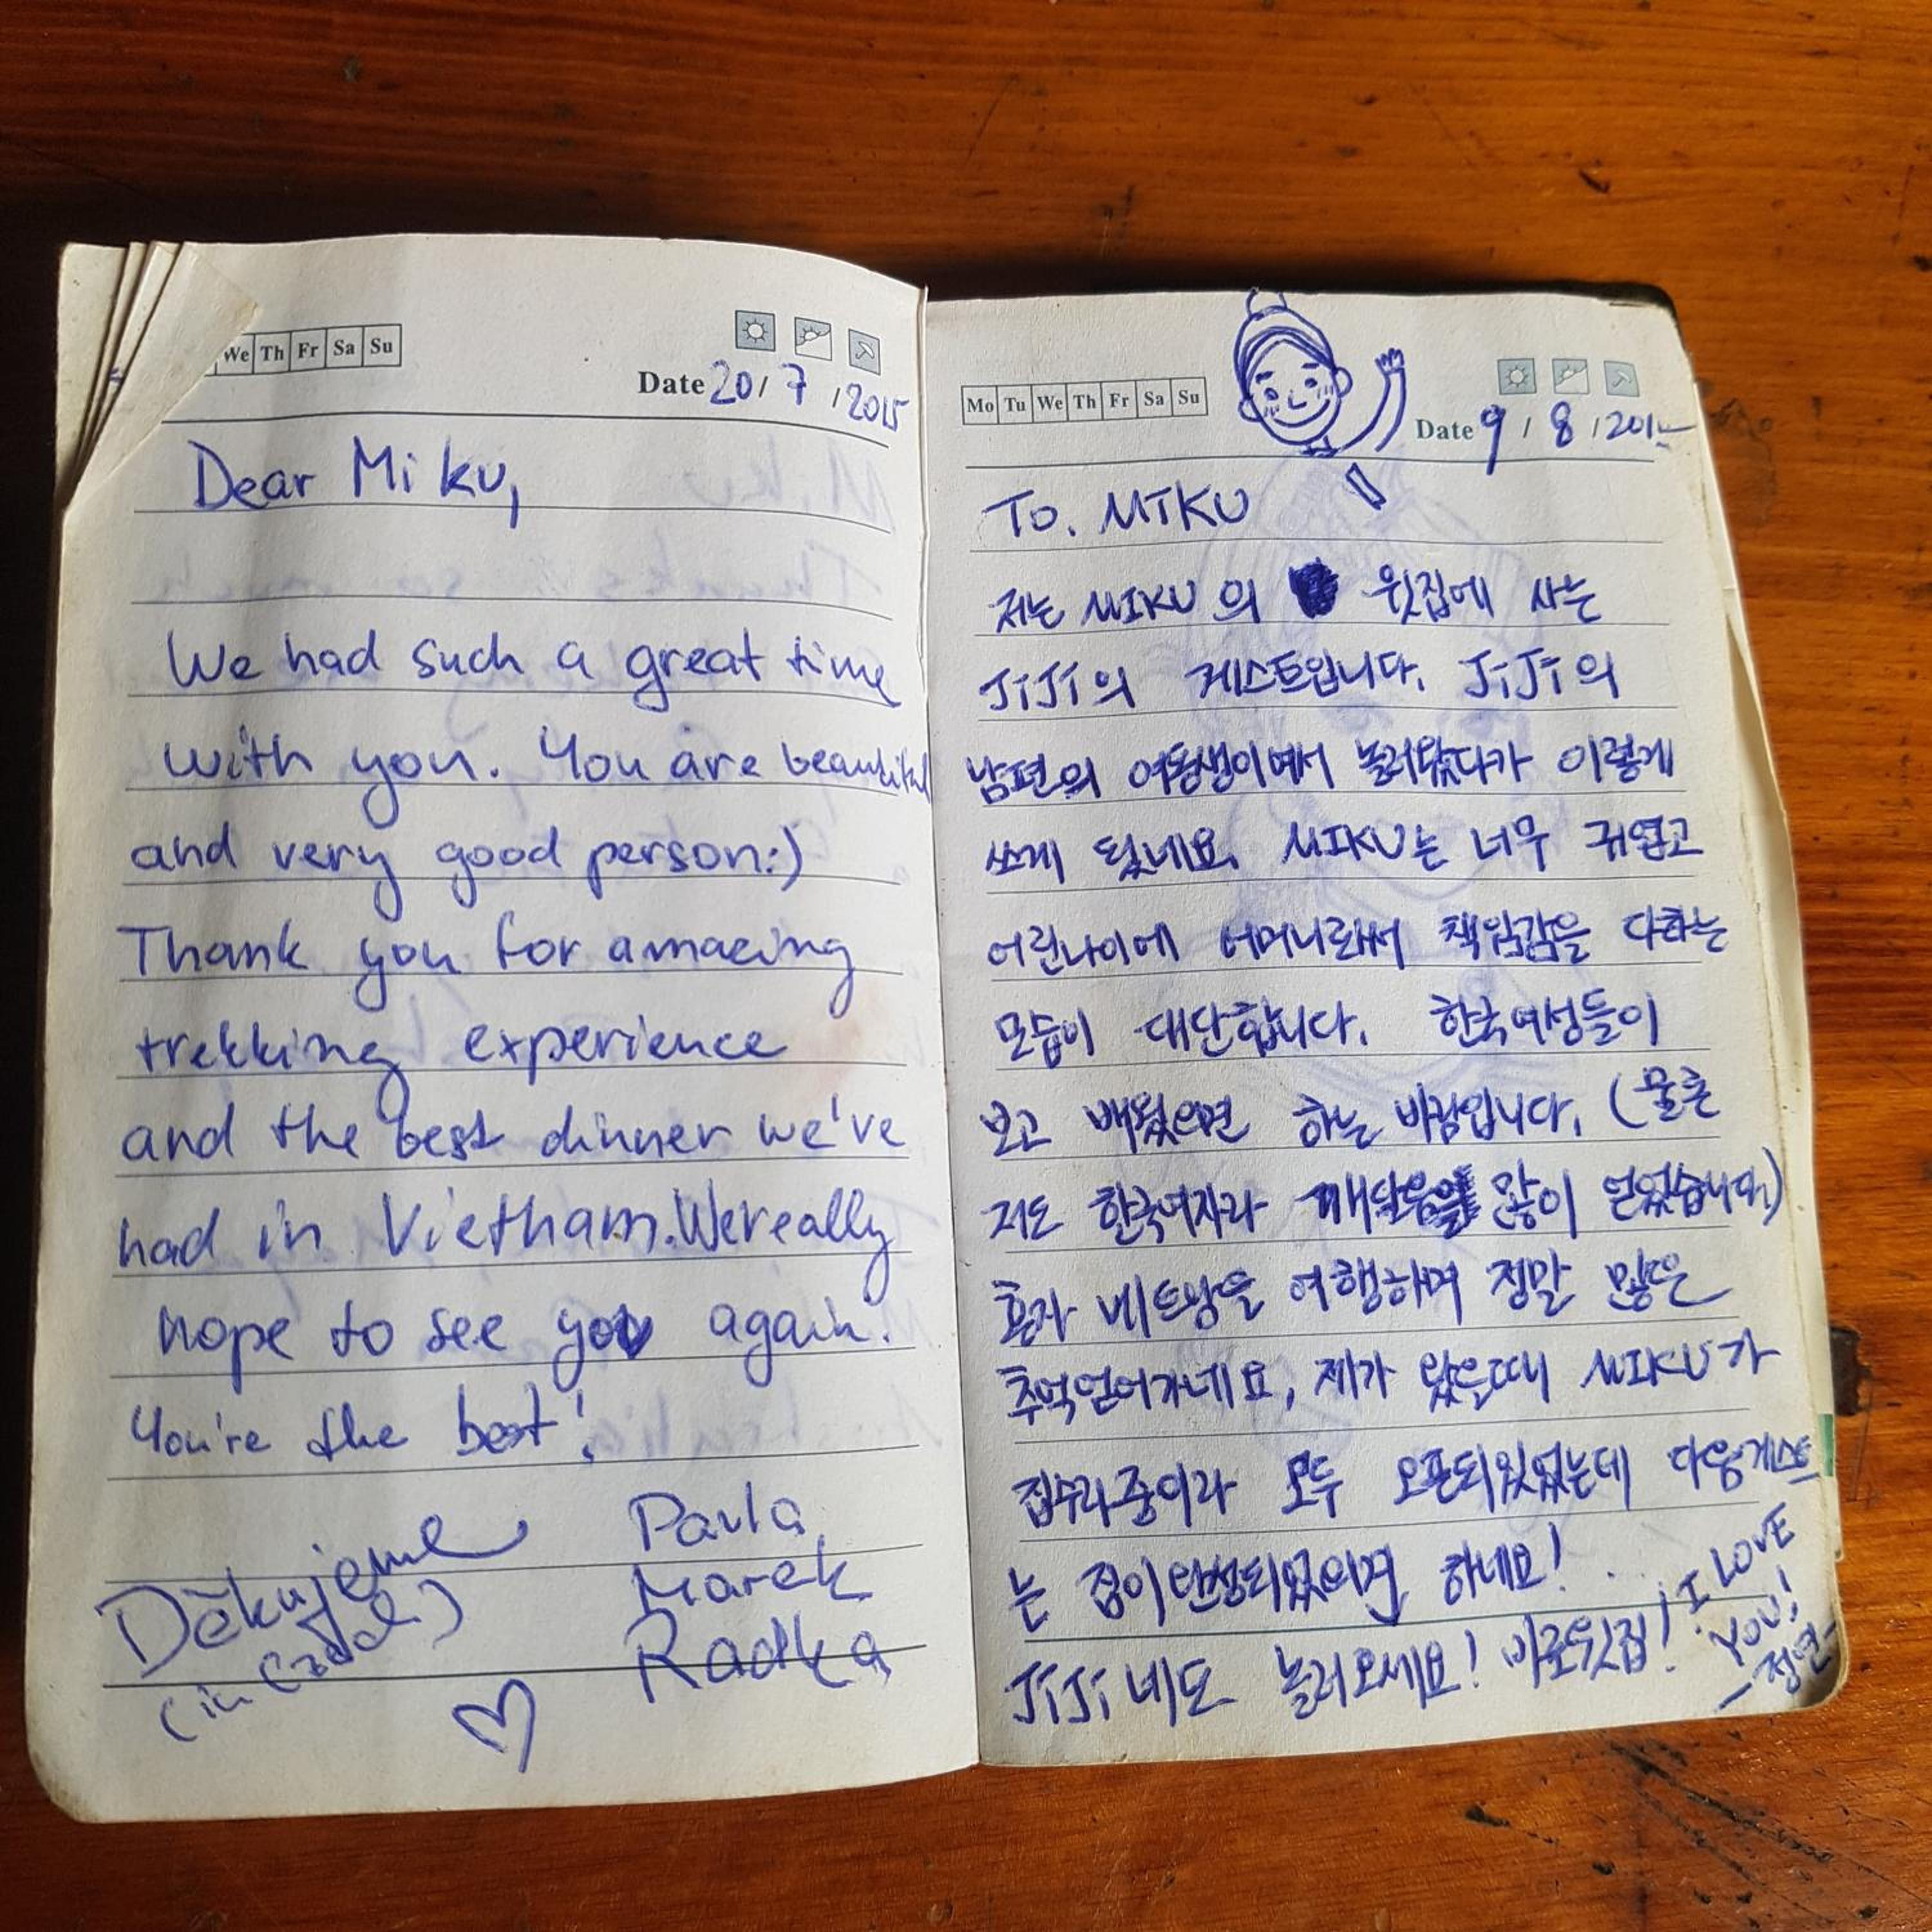 We Th Fr Sa Su
Date 20/ 7 /2015
Dear Miku,
We had such a great time
with you. You are beautiful
and very good person:)
Thank you for amazing
trekking experience
and the best dinner we've
had in Vietnam. We really
hope to see you again.
You're the best!
Děkujeme
(in Czech)
Pavla
Marek
Radka
Mo Tu We Th Fr Sa Su
Date 9 / 8 /201
To. MIKU
저는 MIKU의 윗집에 사는
JiJi의 게스트입니다. JiJi의
남편의 여동생이여서 놀러왔다가 이렇게
쓰게 됬네요. MIKU는 너무 귀엽고
어린나이에 어머니로써 책임감을 다하는
모습이 대단합니다. 한국여성들이
보고 배웠으면 하는 바람입니다. (물론
저도 한국여자라 깨달음을 많이 얻었습니다)
혼자 베트남을 여행하며 정말 많은
추억얻어가네요, 제가 왔을때 MIKU가
집수리중이라 모두 오픈되있었는데 다음게스트
는 집이완성되있으면 하네요!
JiJi네도 놀러오세요! 바로윗집!
I LOVE
YOU!
-정연-